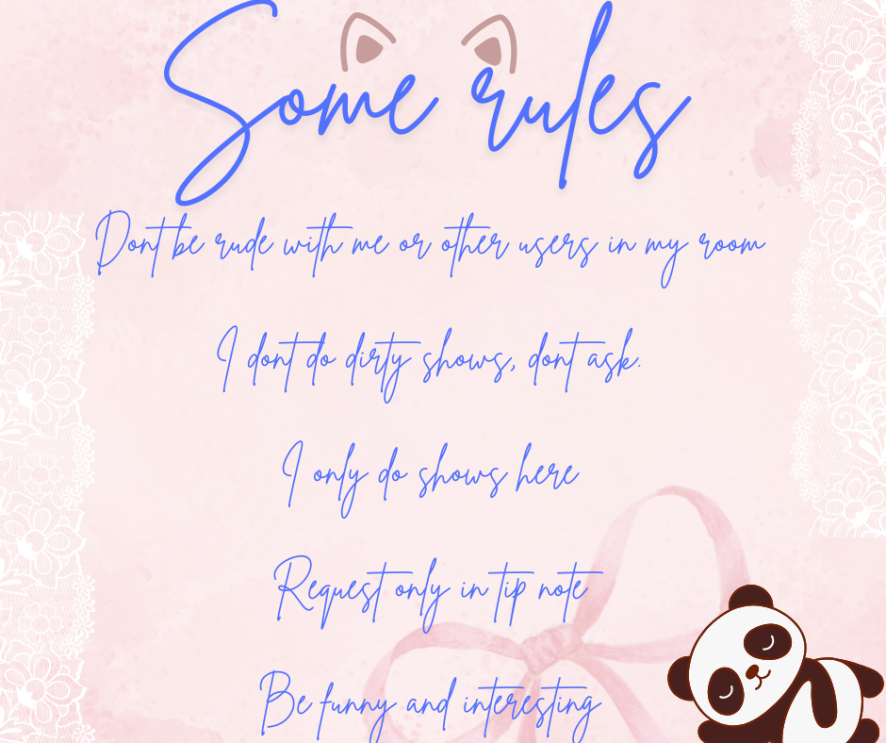 Some rules
Dont be rude with me or other users in my room
I dont do dirty shows, dont ask.
I only do shows here
Request only in tip note
Be funny and interesting